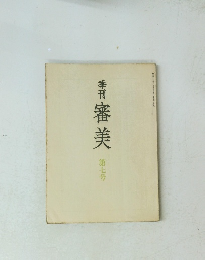 季刊
審美
第七号